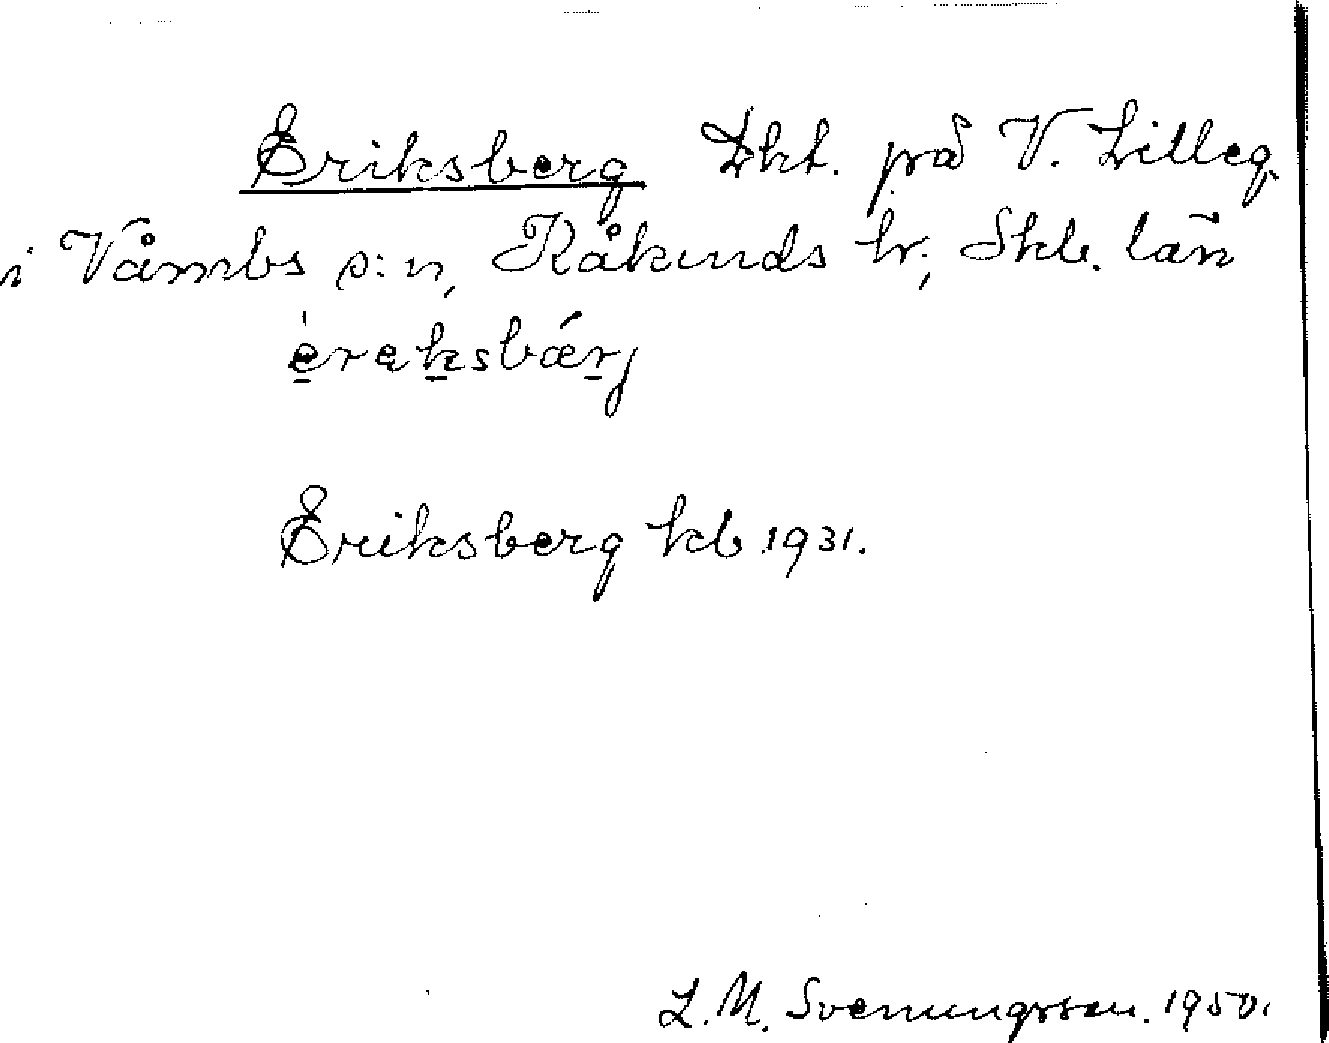 Eriksberg Lht. på V. Lilleg.
i Våmbs s:n, Kåkinds hr; Skb. län
ereksbärj
Eriksberg kb 1931.
L.M. Svenungsson. 1950.